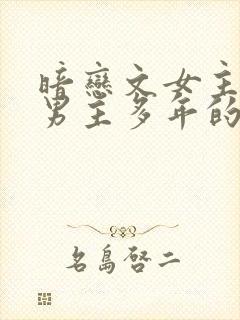 暗戀文女主
男主多年的
名島啓二